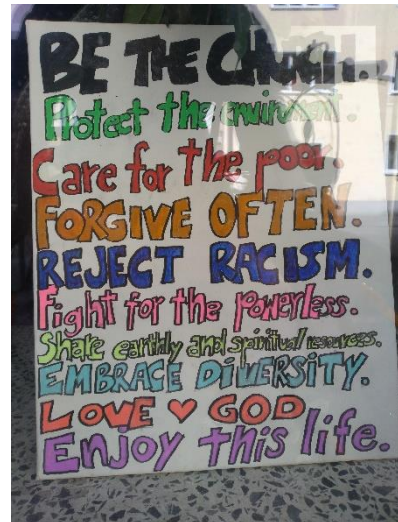 BE THE CHURCH.
Protect the environment.
Care for the poor.
FORGIVE OFTEN.
REJECT RACISM.
Fight for the powerless.
Share earthly and spiritual resources.
EMBRACE DIVERSITY.
LOVE ♥ GOD
Enjoy this life.